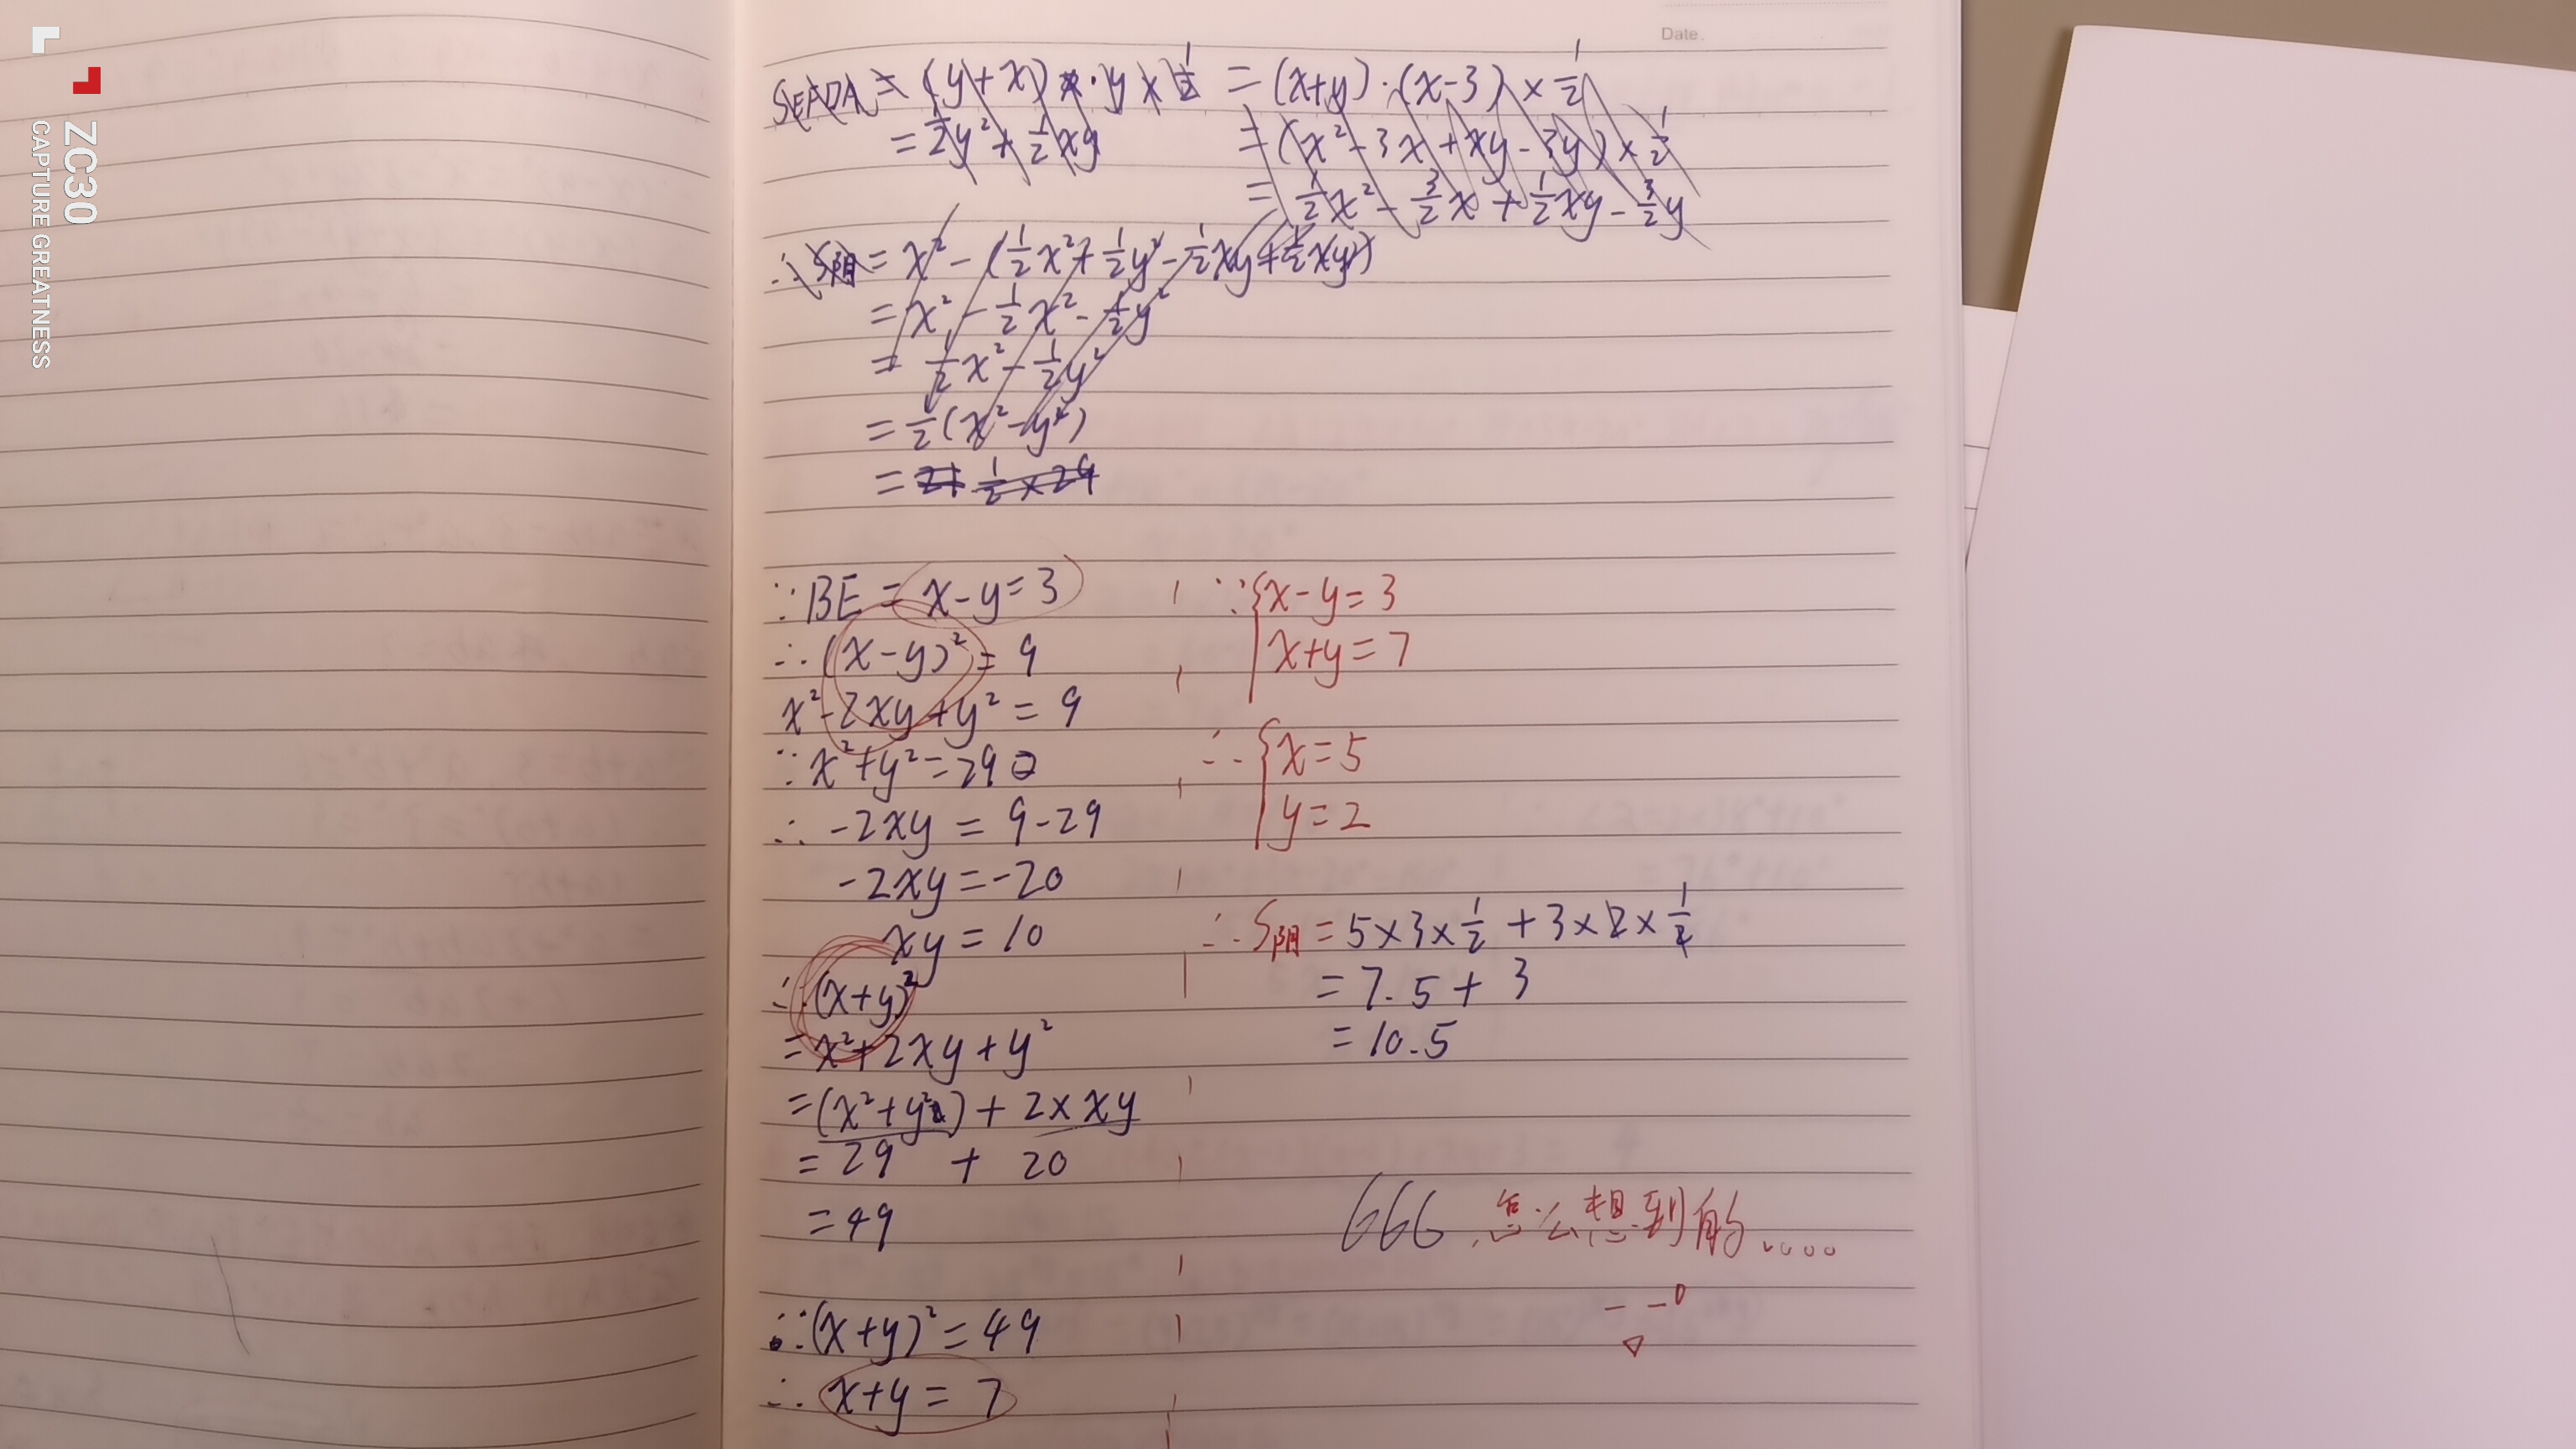 ZC30
CAPTURE GREATNESS
Date.
SEFDA = (y+x)·y×1/2 = (x+y)·(x-3)×1/2
= 1/2y²+1/2xy
= (x²-3x+xy-3y)×1/2
= 1/2x²-3/2x+1/2xy-3/2y
∴S阴 = x²-(1/2x²+1/2y²-1/2xy+1/2xy)
= x²-1/2x²-1/2y²
= 1/2x²-1/2y²
= 1/2(x²-y²)
= 21 1/2×29
∵BE = x-y=3
∴(x-y)² = 9
x²-2xy+y² = 9
∵x²+y²=29
∴-2xy = 9-29
-2xy=-20
xy = 10
∴(x+y)²
=x²+2xy+y²
=(x²+y²)+2×xy
= 29 + 20
=49
∵(x+y)²=49
∴x+y = 7
∵{x-y=3
x+y=7
∴{x=5
y=2
∴S阴=5×3×1/2+3×2×1/2
=7.5+3
=10.5
666 怎么想到的....